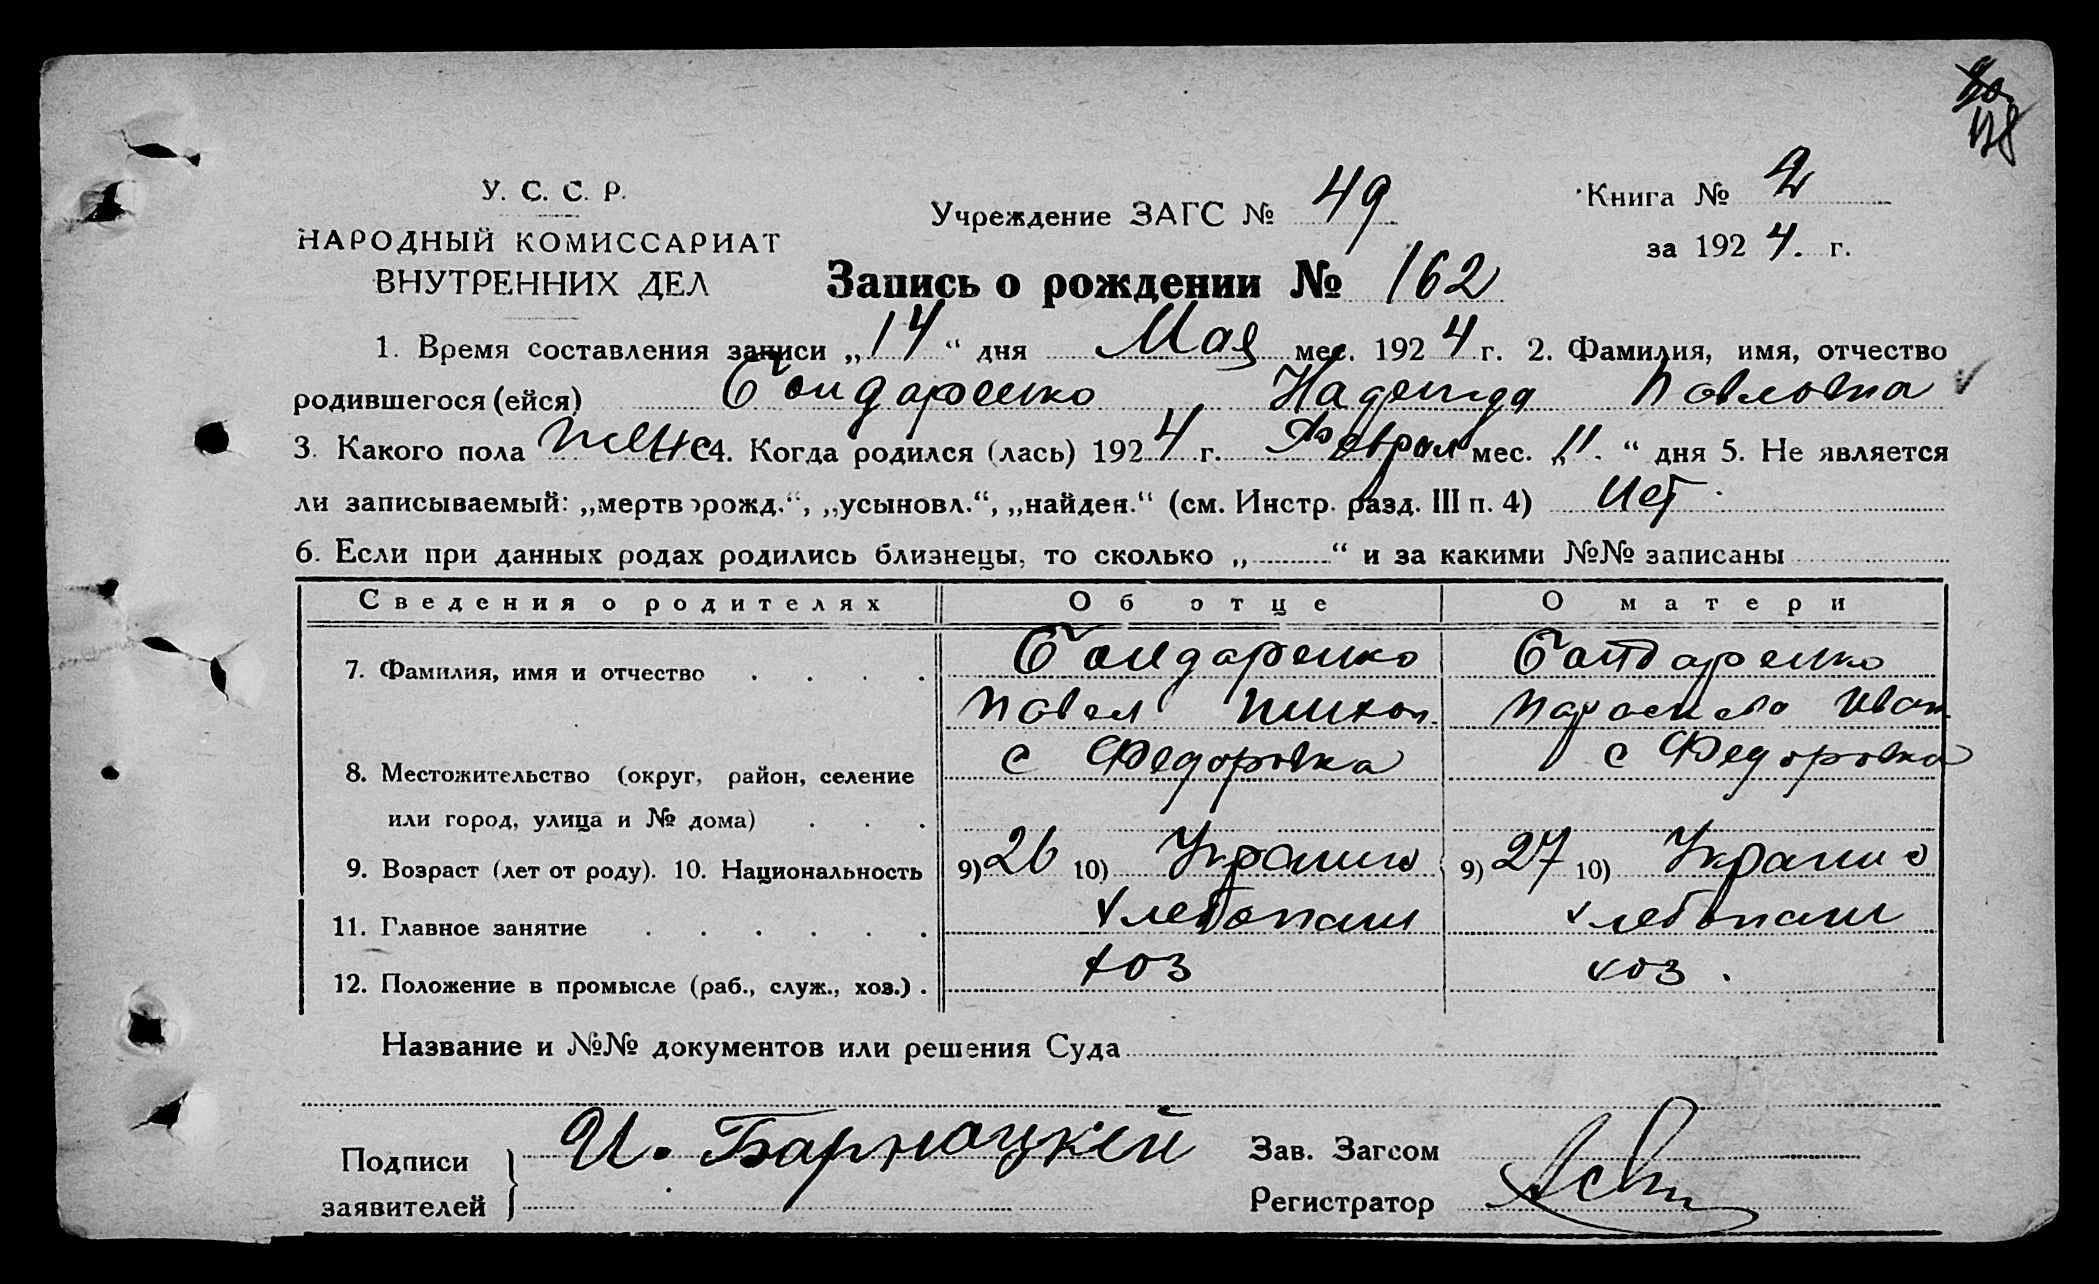 128
У. С. С. Р.
НАРОДНЫЙ КОМИССАРИАТ
ВНУТРЕННИХ ДЕЛ
Учреждение ЗАГС № 49
Книга № 2
за 1924. г.
Запись о рождении № 162
1. Время составления записи „14“ дня Мая мес. 1924 г. 2. Фамилия, имя, отчество
родившегося (ейся) Бондаренко Надежда Павловна
3. Какого пола женс 4. Когда родился (лась) 1924 г. Феврал мес. „11.“ дня 5. Не является
ли записываемый: „мертворожд.“, „усыновл.“, „найден.“ (см. Инстр. разд. III п. 4) Нет.
6. Если при данных родах родились близнецы, то сколько „ “ и за какими №№ записаны
Сведения о родителях Об отце О матери
7. Фамилия, имя и отчество . . . . Бондаренко Бондаренко
Павел Параскева Иван
с Федоровка с Федоровка
8. Местожительство (округ, район, селение
или город, улица и № дома) . . .
9. Возраст (лет от роду). 10. Национальность 9) 26 10) Украин 9) 27 10) Украин
11. Главное занятие . . . . . . Хлебопаш хлебопаш
12. Положение в промысле (раб., служ., хоз.) . хоз хоз.
Название и №№ документов или решения Суда
Подписи
заявителей
И. Барнацкій
Зав. Загсом
Регистратор